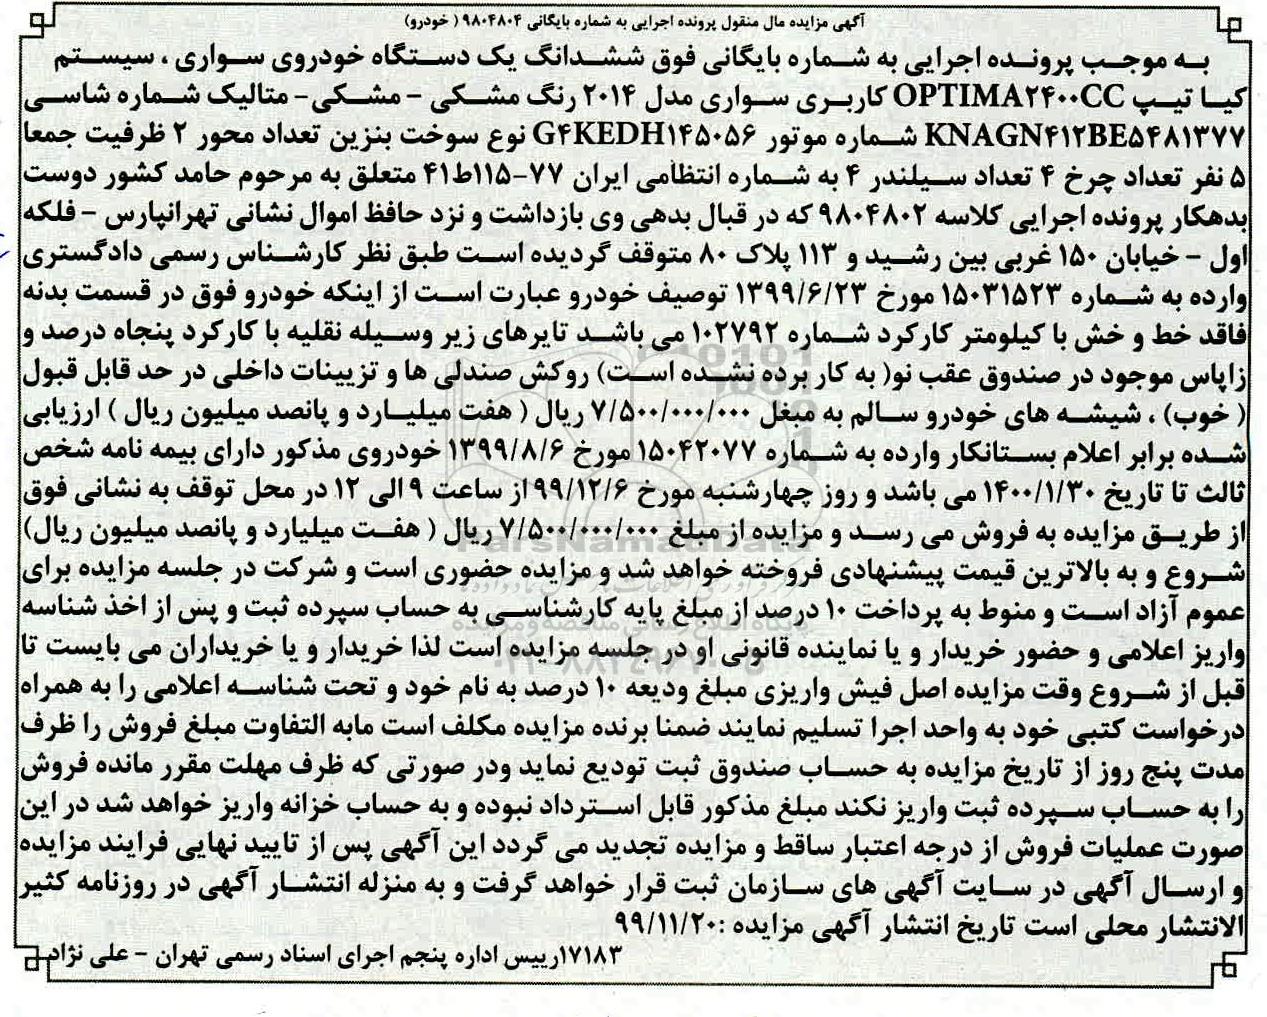 آگهی مزایده مال منقول پرونده اجرایی به شماره بایگانی ۹۸۰۴۸۰۴ ( خودرو)
به موجب پرونده اجرایی به شماره بایگانی فوق ششدانگ یک دستگاه خودروی سواری ، سیستم
کیا تیپ OPTIMA۲۴۰۰CC کاربری سواری مدل ۲۰۱۴ رنگ مشکی - مشکی- متالیک شماره شاسی
KNAGN۴۱۲BE۵۴۸۱۳۷۷ شماره موتور G۴KEDH۱۴۵۰۵۶ نوع سوخت بنزین تعداد محور ۲ ظرفیت جمعا
۵ نفر تعداد چرخ ۴ تعداد سیلندر ۴ به شماره انتظامی ایران ۷۷-۱۱۵ط۴۱ متعلق به مرحوم حامد کشور دوست
بدهکار پرونده اجرایی کلاسه ۹۸۰۴۸۰۲ که در قبال بدهی وی بازداشت و نزد حافظ اموال نشانی تهرانپارس - فلکه
اول - خیابان ۱۵۰ غربی بین رشید و ۱۱۳ پلاک ۸۰ متوقف گردیده است طبق نظر کارشناس رسمی دادگستری
وارده به شماره ۱۵۰۳۱۵۲۳ مورخ ۱۳۹۹/۶/۲۳ توصیف خودرو عبارت است از اینکه خودرو فوق در قسمت بدنه
فاقد خط و خش با کیلومتر کارکرد شماره ۱۰۲۷۹۲ می باشد تایرهای زیر وسیله نقلیه با کارکرد پنجاه درصد و
زاپاس موجود در صندوق عقب نو( به کار برده نشده است) روکش صندلی ها و تزیینات داخلی در حد قابل قبول
( خوب) ، شیشه های خودرو سالم به مبغل ۷/۵۰۰/۰۰۰/۰۰۰ ریال ( هفت میلیارد و پانصد میلیون ریال ) ارزیابی
شده برابر اعلام بستانکار وارده به شماره ۱۵۰۴۲۰۷۷ مورخ ۱۳۹۹/۸/۶ خودروی مذکور دارای بیمه نامه شخص
ثالث تا تاریخ ۱۴۰۰/۱/۳۰ می باشد و روز چهارشنبه مورخ ۹۹/۱۲/۶ از ساعت ۹ الی ۱۲ در محل توقف به نشانی فوق
از طریق مزایده به فروش می رسد و مزایده از مبلغ ۷/۵۰۰/۰۰۰/۰۰۰ ریال ( هفت میلیارد و پانصد میلیون ریال)
شروع و به بالاترین قیمت پیشنهادی فروخته خواهد شد و مزایده حضوری است و شرکت در جلسه مزایده برای
عموم آزاد است و منوط به پرداخت ۱۰ درصد از مبلغ پایه کارشناسی به حساب سپرده ثبت و پس از اخذ شناسه
واریز اعلامی و حضور خریدار و یا نماینده قانونی او در جلسه مزایده است لذا خریدار و یا خریداران می بایست تا
قبل از شروع وقت مزایده اصل فیش واریزی مبلغ ودیعه ۱۰ درصد به نام خود و تحت شناسه اعلامی را به همراه
درخواست کتبی خود به واحد اجرا تسلیم نمایند ضمنا برنده مزایده مکلف است مابه التفاوت مبلغ فروش را ظرف
مدت پنج روز از تاریخ مزایده به حساب صندوق ثبت تودیع نماید ودر صورتی که ظرف مهلت مقرر مانده فروش
را به حساب سپرده ثبت واریز نکند مبلغ مذکور قابل استرداد نبوده و به حساب خزانه واریز خواهد شد در این
صورت عملیات فروش از درجه اعتبار ساقط و مزایده تجدید می گردد این آگهی پس از تایید نهایی فرایند مزایده
و ارسال آگهی در سایت آگهی های سازمان ثبت قرار خواهد گرفت و به منزله انتشار آگهی در روزنامه کثیر
الانتشار محلی است تاریخ انتشار آگهی مزایده :۹۹/۱۱/۲۰
۱۷۱۸۳رییس اداره پنجم اجرای اسناد رسمی تهران - علی نژاد
ParsNamadData